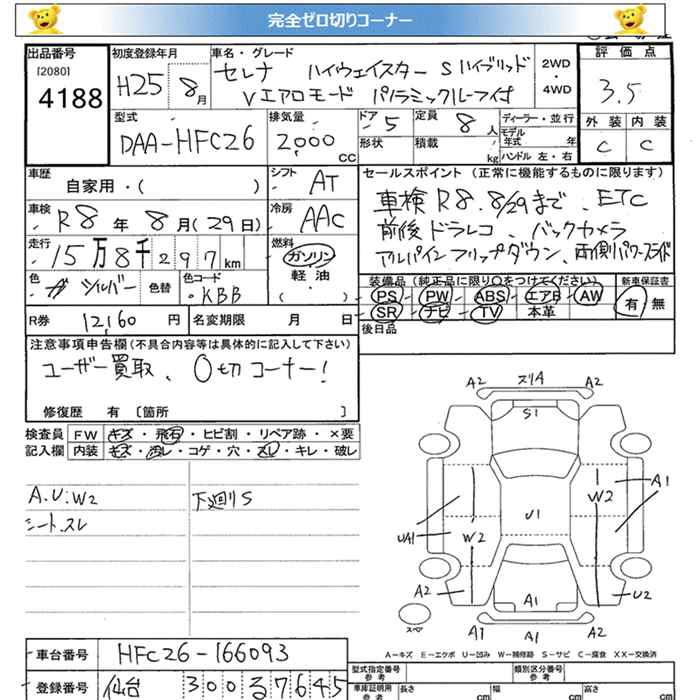 完全ゼロ切りコーナー
出品番号 初度登録年月 車名・グレード 評価点
[2080] H25 8月 セレナ ハイウェイスター Sハイブリッド 2WD・4WD 3.5
4188 Vエアロモード パノラミックルーフ付
型式 排気量 ドア 5 定員 8人 ディーラー・並行 外装 内装
DAA-HFC26 2000 CC 形状 積載 kg モデル年式 年 C C
ハンドル 左・右
車歴 自家用・( ) シフト AT セールスポイント (正常に機能するものに限ります)
車検 R8年 8月(29日) 冷房 AAC 車検R8.8/29まで、ETC
前後ドラレコ、バックカメラ
走行 15万8千297km 燃料 ガソリン アルパインフリップダウン、両側パワースライド
軽・油
( )
色 ガ シルバー 色替 色コード KBB 装備品 (純正品に限り○をつけてください) 新車保証書
PS・PW・ABS・エアB・AW 有・無
SR・ナビ・TV・本革
R券 12,160円 名変期限 月 日 後日品
注意事項申告欄 (不具合内容等は具体的に記入して下さい)
ユーザー買取、0切コーナー!
修復歴 有 [箇所 ]
検査員 FW キズ・飛石・ヒビ割・リペア跡・×要
記入欄 内装 キズ・汚レ・コゲ・穴・スレ・キレ・破レ
A.U:W2 下廻りS
シートスレ
A2 スリA A2
S1
A1
W2
U1
UA1 W2
A2 U2
A1
スペア A1 A1
A-キズ E-エクボ U-凹み W-補修跡 S-サビ C-腐食 XX-交換済
車台番号 HFC26-166093
登録番号 仙台 300 る 7645
型式指定番号 参考 類別区分番号 参考
車庫証明用 参考 長さ cm 幅 cm 高さ cm